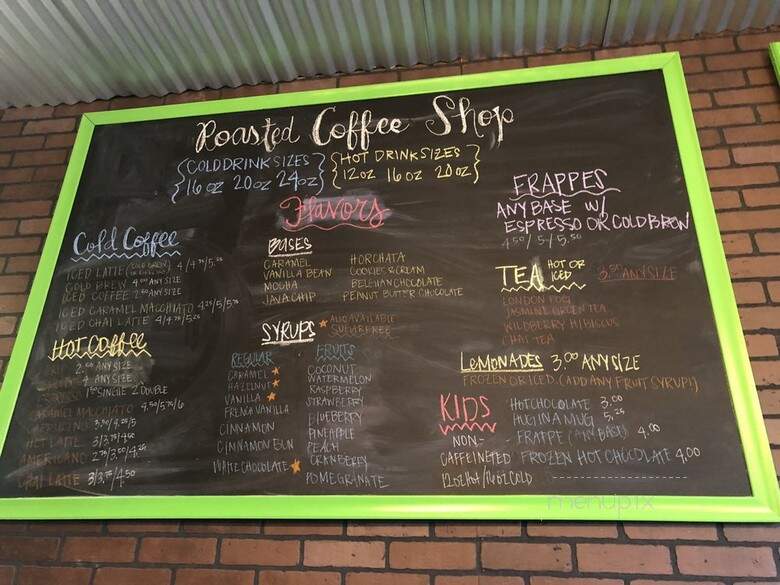 Roasted Coffee Shop
COLD DRINK SIZES
16 oz 20 oz 24 oz
HOT DRINK SIZES
12 oz 16 oz 20 oz
Flavors
Cold Coffee
ICED LATTE 4/4.75/5.25
COLD BREW 4.00 ANY SIZE
ICED COFFEE 2.50 ANY SIZE
ICED CARAMEL MACCHIATO 4.25/5/5.75
ICED CHAI LATTE 4/4.75/5.25
HOT COFFEE
2.00 ANY SIZE
4 ANY SIZE
SINGLE 2 DOUBLE
CARAMEL MACCHIATO 4.50/5.25/6
CAPPUCCINO
HOT LATTE 3/3.75/4.50
AMERICANO
CHAI LATTE 3/3.75/4.50
BASES
CARAMEL
VANILLA BEAN
MOCHA
JAVA CHIP
HORCHATA
COOKIES & CREAM
BELGIAN CHOCOLATE
PEANUT BUTTER CHOCOLATE
SYRUPS
ALSO AVAILABLE
SUGAR FREE
REGULAR
CARAMEL
HAZELNUT
VANILLA
FRENCH VANILLA
CINNAMON
CINNAMON BUN
WHITE CHOCOLATE
FRUITS
COCONUT
WATERMELON
RASPBERRY
STRAWBERRY
BLUEBERRY
PINEAPPLE
PEACH
CRANBERRY
POMEGRANATE
FRAPPES
ANY BASE W/
ESPRESSO OR COLD BREW
4.50/5/5.50
TEA HOT OR ICED
ANY SIZE
LONDON FOG
JASMINE GREEN TEA
WILDBERRY HIBISCUS
CHAI TEA
LEMONADES 3.00 ANY SIZE
FROZEN OR ICED (ADD ANY FRUIT SYRUP!)
KIDS
NON-
CAFFEINATED
12oz HOT/16oz COLD
HOT CHOCOLATE 3.00
HUG IN A MUG 5.25
FRAPPE (ANY BASE) 4.00
FROZEN HOT CHOCOLATE 4.00
menupix